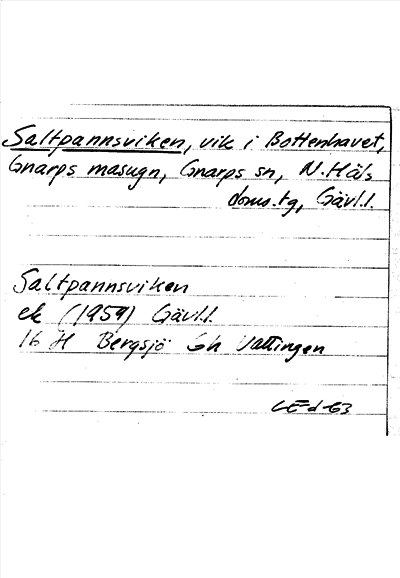 Saltpannsviken, vik i Bottenhavet,
Gnarps masugn, Gnarps sn, N. Häls
doms.tg, Gävl.l.
Saltpannsviken
ek (1959) Gävl.l.
16 H Bergsjö Gh Vattingen